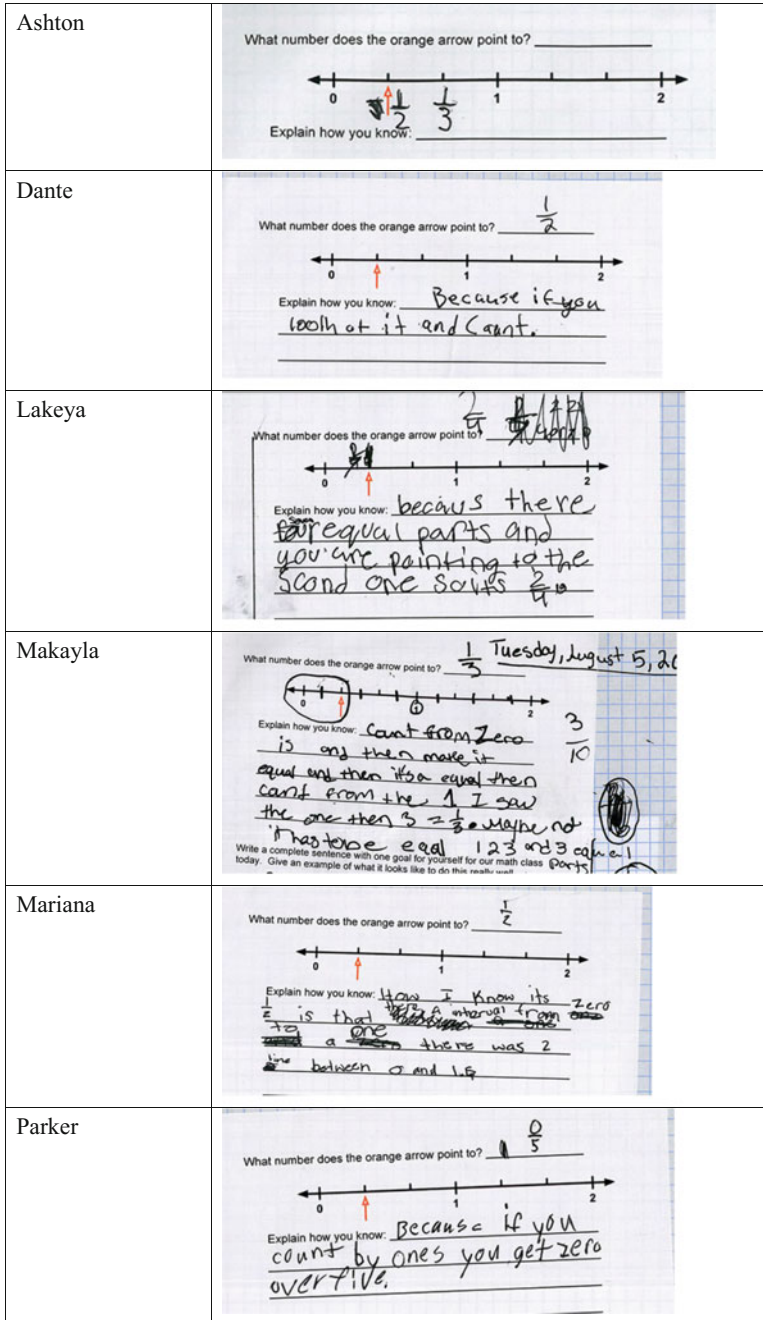 Ashton
What number does the orange arrow point to?
0 1 2
1/2 1/3
Explain how you know:
Dante
What number does the orange arrow point to? 1/2
0 1 2
Explain how you know: Because if you
look at it and Caunt.
Lakeya
2/4
What number does the orange arrow point to?
0 1 2
Explain how you know: becaus there
equal parts and
you are pointing to the
scond one so its 2/4.
Makayla
What number does the orange arrow point to? 1/3 Tuesday, August 5, 20
0 1 2
Explain how you know: Count from Zero
3/10
is and then make it
equal and then its a equal then
cant from the 1 I saw
the one then 3 = 1/3. Maybe not
it has to be eqal 1 2 3 and 3 equal
Parts
Write a complete sentence with one goal for yourself for our math class
today. Give an example of what it looks like to do this really well
Mariana
What number does the orange arrow point to? 1/2
0 1 2
Explain how you know: How I know its
1/2 is that there a interval from zero
to a one there was 2
line between 0 and 1.
Parker
What number does the orange arrow point to? 0/5
0 1 2
Explain how you know: Because if you
count by ones you get zero
over five.